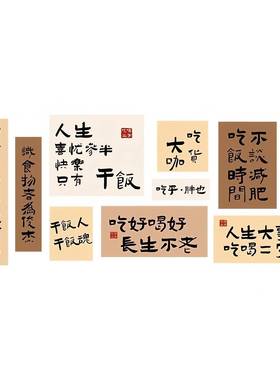 識食物者為俊杰
人生
喜憂參半
快樂
只有
干飯
吃貨
大咖
吃乎·胖也
不談減肥
吃飯時間
干飯人
干飯魂
吃好喝好
長生不老
人生大事
吃喝二